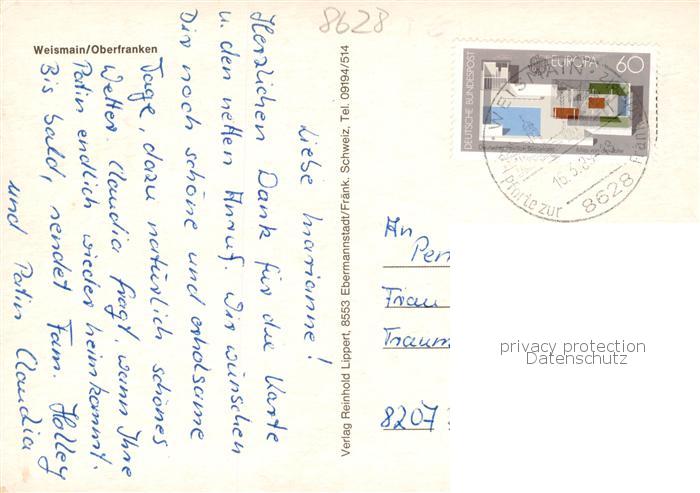 8628
Weismain/Oberfranken
Liebe Marianne!
Herzlichen Dank für die Karte
u. den netten Anruf. Wir wünschen
Dir noch schöne und erholsame
Tage, dazu natürlich schönes
Wetter. Claudia fragt, wann Ihre
Patin endlich wieder heimkommt.
Bis bald, sendet Fam. Holley
und Patin Claudia
Verlag Reinhold Lippert, 8553 Ebermannstadt/Fränk. Schweiz, Tel. 09194/514
DEUTSCHE BUNDESPOST
EUROPA
60
WEISMAIN
Pforte zur
8628
An
Pen
Frau
Traum
8207
privacy protection
Datenschutz